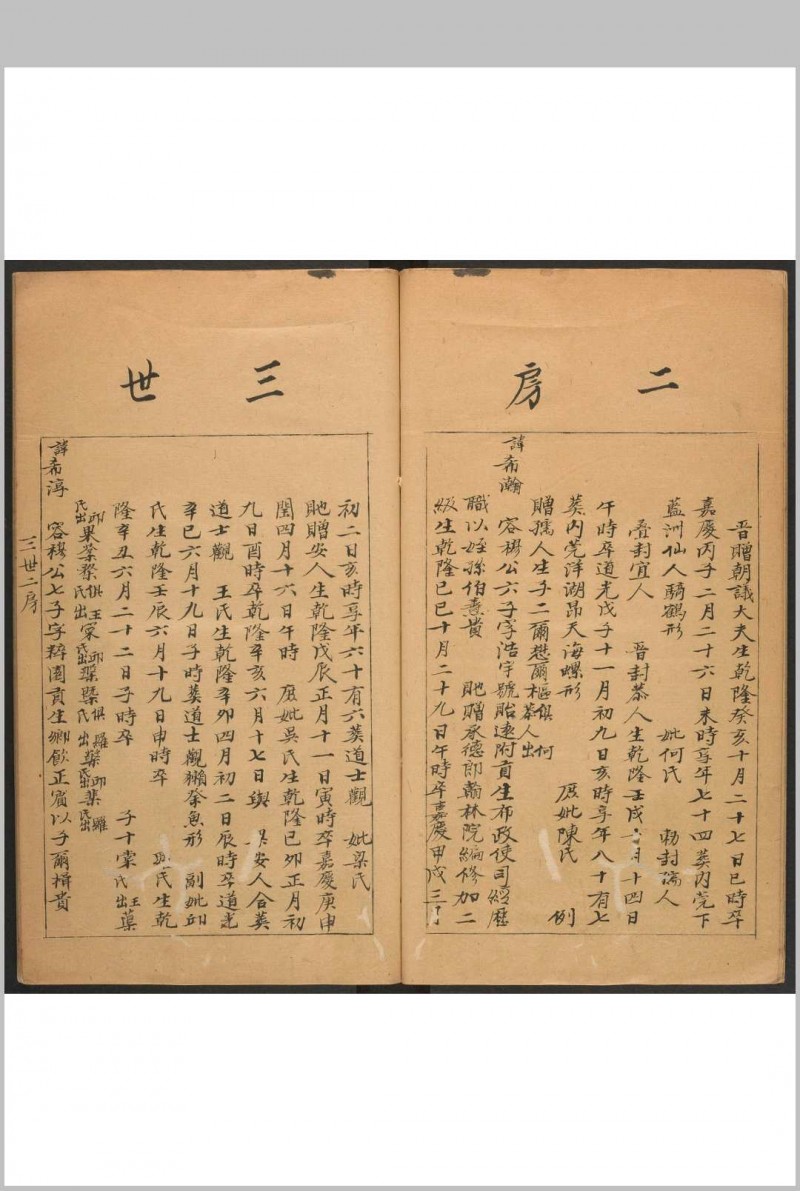 二房
晋贈朝議大夫生乾隆癸亥十月二十七日巳時卒
嘉慶丙子二月二十六日未時享年七十四葬内莞下
藍洲仙人騎鶴形 妣何氏 勅封孺人
叠封宜人 晋封恭人生乾隆壬戌 月十四日
午時卒道光戊子十一月初九日亥時享年八十有七
葬内莞洋湖昂天海螺形 庶妣陳氏 例
贈孺人生子二爾懋爾樞俱何恭人出
諱希瀚
容穆公六子字浩宇號貽遠附貢生布政使司經歷
職以姪孫伯熹貴 貤贈承德郎翰林院編修加二
級生乾隆己巳十月二十九日午時卒嘉慶甲戌三月
三世
初二日亥時享年六十有六葬道士觀 妣梁氏
貤贈安人生乾隆戊辰正月十一日寅時卒嘉慶庚申
閏四月十六日午時 庶妣吳氏生乾隆己卯正月初
九日酉時卒乾隆辛亥六月十七日與 安人合葬
道士觀 王氏生乾隆辛卯四月初二日辰時卒道光
辛巳六月十九日子時葬道士觀獺拳魚形 副妣邱
氏生乾隆壬辰六月十九日申時卒 氏生乾
隆辛丑六月二十二日子時卒 子十棠王氏出蕖
邱氏出果榮 俱王氏出 邱氏出 俱羅氏出 邱氏出 羅氏出
諱希淳
容穆公七子字粹園貢生鄉飲正賓以子爾楫貴
三世二房